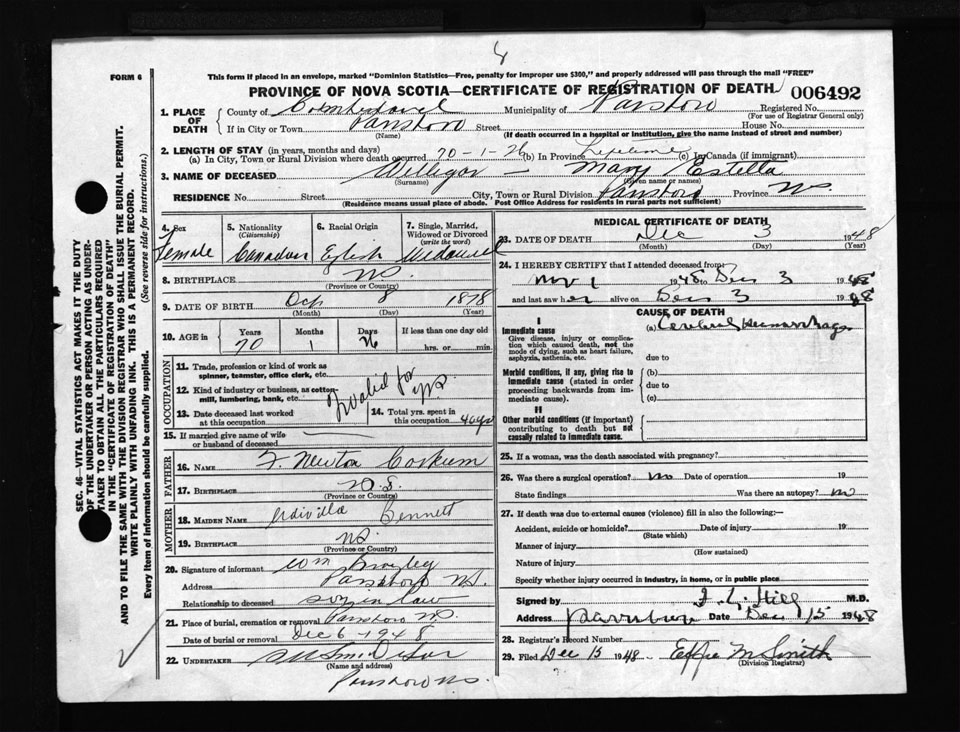 FORM 6
This form if placed in an envelope, marked "Dominion Statistics—Free, penalty for improper use $300," and properly addressed will pass through the mail "FREE"
PROVINCE OF NOVA SCOTIA—CERTIFICATE OF REGISTRATION OF DEATH 006492
1. PLACE OF DEATH County of Municipality of Registered No.
(For use of Registrar General only)
If in City or Town Parrsboro Street House No.
(Name) (If death occurred in a hospital or institution, give the name instead of street and number)
2. LENGTH OF STAY (in years, months and days)
(a) In City, Town or Rural Division where death occurred 70-1-26 (b) In Province Lifetime (c) In Canada (if immigrant)
3. NAME OF DECEASED Mary Estella
(Surname) (Given name or names)
RESIDENCE No. Street City, Town or Rural Division Parrsboro Province NS
(Residence means usual place of abode. Post Office Address for residents in rural parts not sufficient)
4. Sex 5. Nationality (Citizenship) 6. Racial Origin 7. Single, Married, Widowed or Divorced (write the word)
Female Canadian Widowed
8. BIRTHPLACE NS.
(Province or County)
9. DATE OF BIRTH Oct 8 1878
(Month) (Day) (Year)
10. AGE in Years Months Days If less than one day old
70 1 26 hrs. or min.
OCCUPATION
11. Trade, profession or kind of work as spinner, teamster, office clerk, etc.
12. Kind of industry or business, as cotton-mill, lumbering, bank, etc.
Invalid for yrs.
13. Date deceased last worked at this occupation
14. Total yrs. spent in this occupation 40 yrs
15. If married give name of wife or husband of deceased
FATHER
16. NAME Newton
17. BIRTHPLACE N.S.
(Province or Country)
MOTHER
18. MAIDEN NAME Bennett
19. BIRTHPLACE NS.
(Province or Country)
20. Signature of informant Wm
Address Parrsboro NS.
Relationship to deceased son in law
21. Place of burial, cremation or removal Parrsboro NS.
Date of burial or removal Dec 6 - 1948
22. UNDERTAKER
(Name and address)
Parrsboro NS.
MEDICAL CERTIFICATE OF DEATH
23. DATE OF DEATH Dec 3 1948
(Month) (Day) (Year)
24. I HEREBY CERTIFY that I attended deceased from
Nov 1 1948 Dec 3 1948
and last saw her alive on Dec 3 1948
CAUSE OF DEATH
I
Immediate cause
Give disease, injury or complication which caused death, not the mode of dying, such as heart failure, asphyxia, asthenia, etc.
(a) Cerebral Hemorrhage
due to
Morbid conditions, if any, giving rise to immediate cause (stated in order proceeding backwards from immediate cause).
(b)
due to
(c)
II
Other morbid conditions (if important) contributing to death but not causally related to immediate cause.
25. If a woman, was the death associated with pregnancy?
26. Was there a surgical operation? no Date of operation 19
State findings Was there an autopsy? no
27. If death was due to external causes (violence) fill in also the following:—
Accident, suicide or homicide? Date of injury 19
(State which)
Manner of injury
(How sustained)
Nature of injury
Specify whether injury occurred in industry, in home, or in public place
Signed by Hill M.D.
Address Parrsboro Date Dec 15 1948
28. Registrar's Record Number
29. Filed Dec 15 1948 Effie M Smith
(Division Registrar)
SEC. 46—VITAL STATISTICS ACT MAKES IT THE DUTY
OF THE UNDERTAKER OR PERSON ACTING AS UNDER-
TAKER TO OBTAIN ALL THE PARTICULARS REQUIRED
IN THE "CERTIFICATE OF REGISTRATION OF DEATH"
AND TO FILE THE SAME WITH THE DIVISION REGISTRAR WHO SHALL ISSUE THE BURIAL PERMIT.
WRITE PLAINLY WITH UNFADING INK. THIS IS A PERMANENT RECORD.
Every item of information should be carefully supplied. (See reverse side for instructions.)